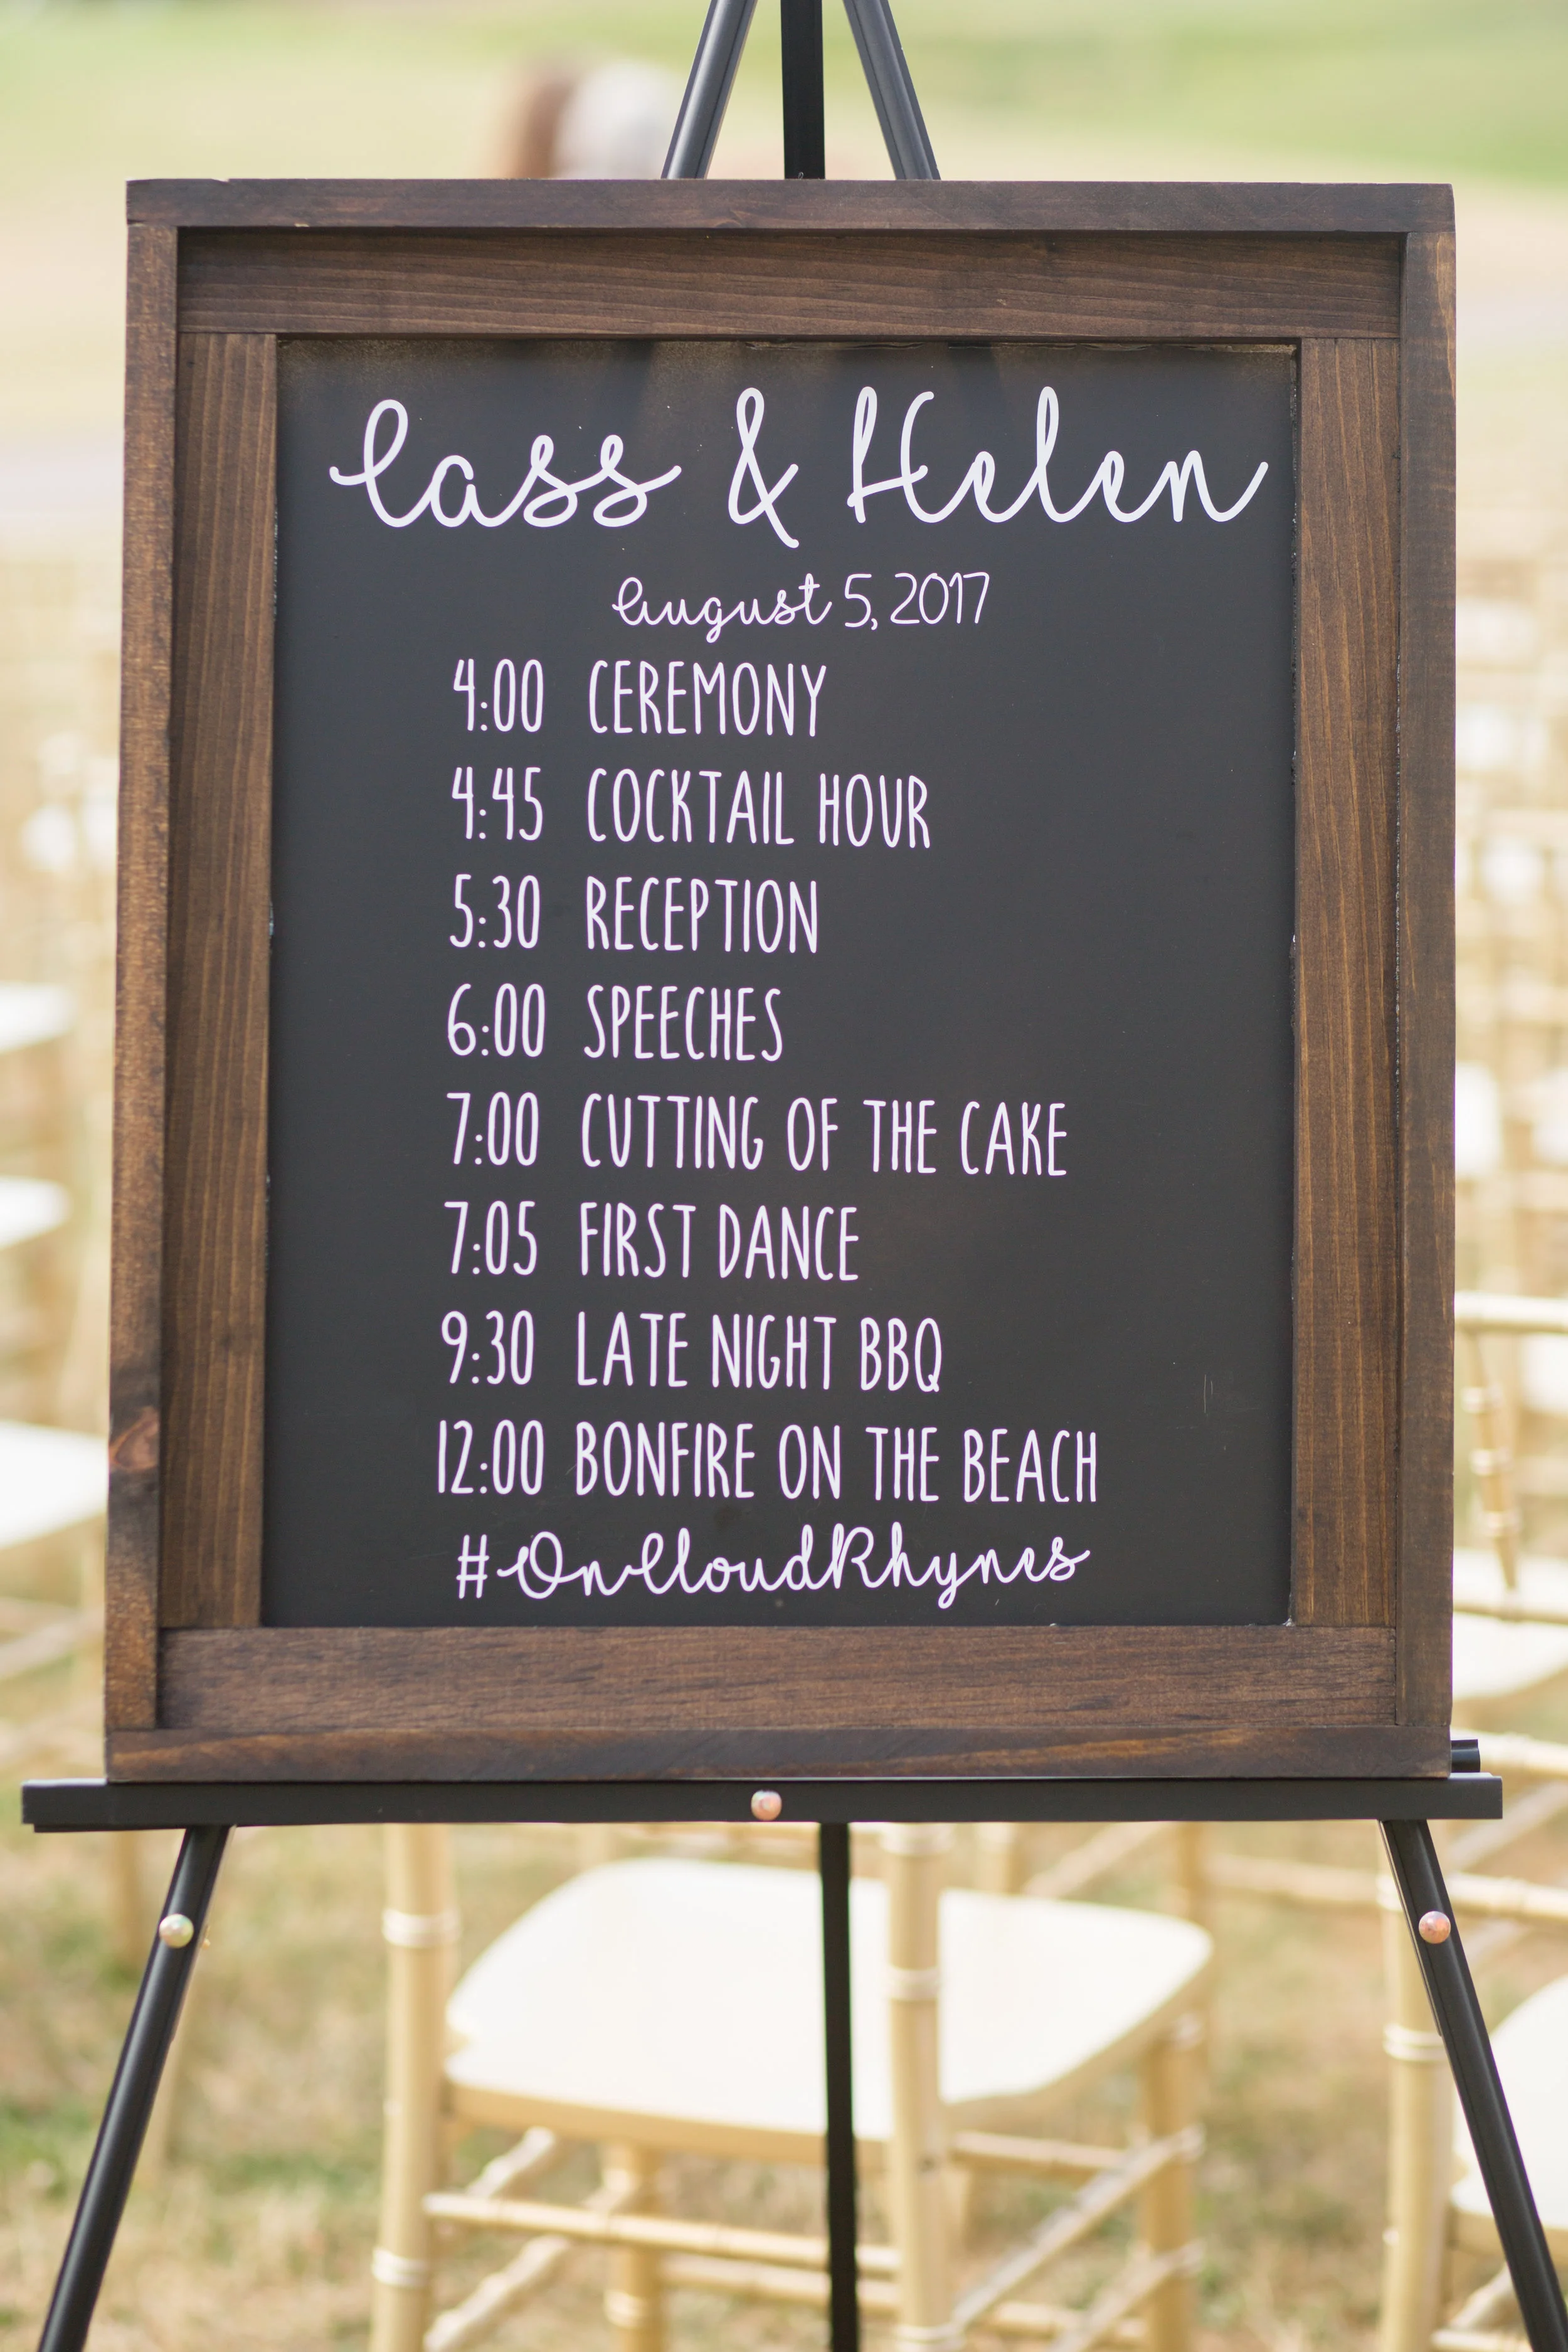 Cass & Helen
August 5, 2017
4:00 CEREMONY
4:45 COCKTAIL HOUR
5:30 RECEPTION
6:00 SPEECHES
7:00 CUTTING OF THE CAKE
7:05 FIRST DANCE
9:30 LATE NIGHT BBQ
12:00 BONFIRE ON THE BEACH
#OnCloudRhynes